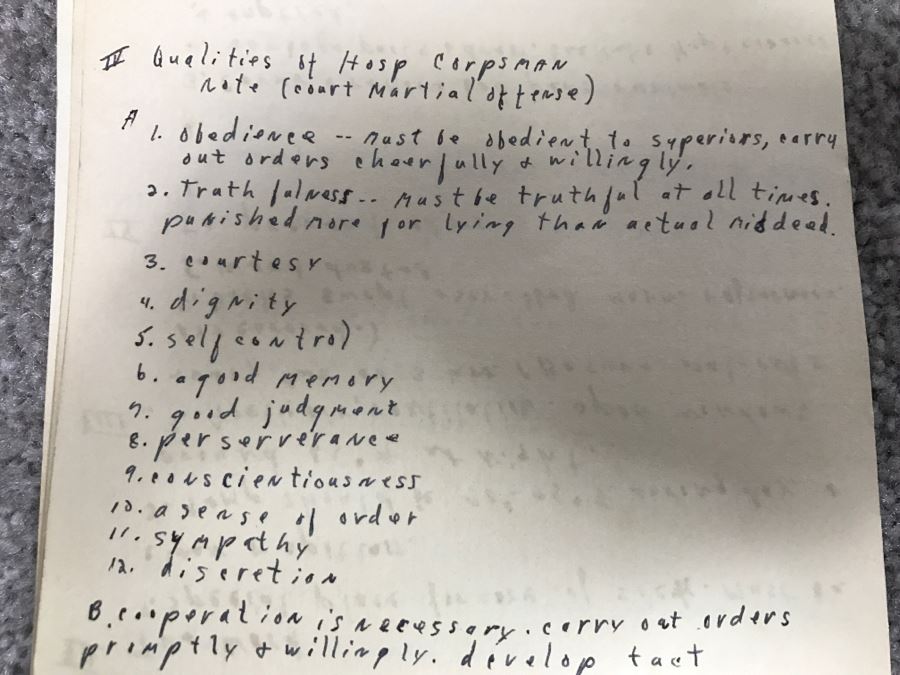 IV Qualities of Hosp Corpsman
Note (court Martial offense)
A 1. obedience -- must be obedient to superiors, carry
out orders cheerfully & willingly.
2. Truthfulness -- must be truthful at all times.
punished more for lying than actual misdeed.
3. courtesy
4. dignity
5. self control
6. a good memory
7. good judgment
8. perserverance
9. conscientiousness
10. a sense of order
11. sympathy
12. discretion
B. cooperation is necessary. carry out orders
promptly & willingly. develop tact